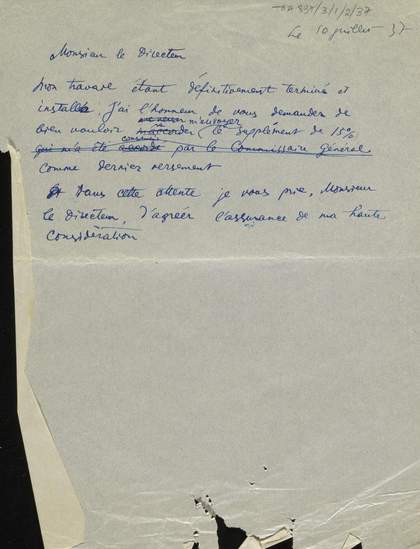 Le 10 juillet 37
Monsieur le Directeur
Mon travail étant définitivement terminé et
installé j'ai l'honneur de vous demander de
m'envoyer
bien vouloir m'accorder le supplément de 15%
qui m'a été accordé par le Commissaire Général
comme dernier versement
Dans cette attente je vous prie, Monsieur
le Directeur, d'agréer l'assurance de ma haute
considération